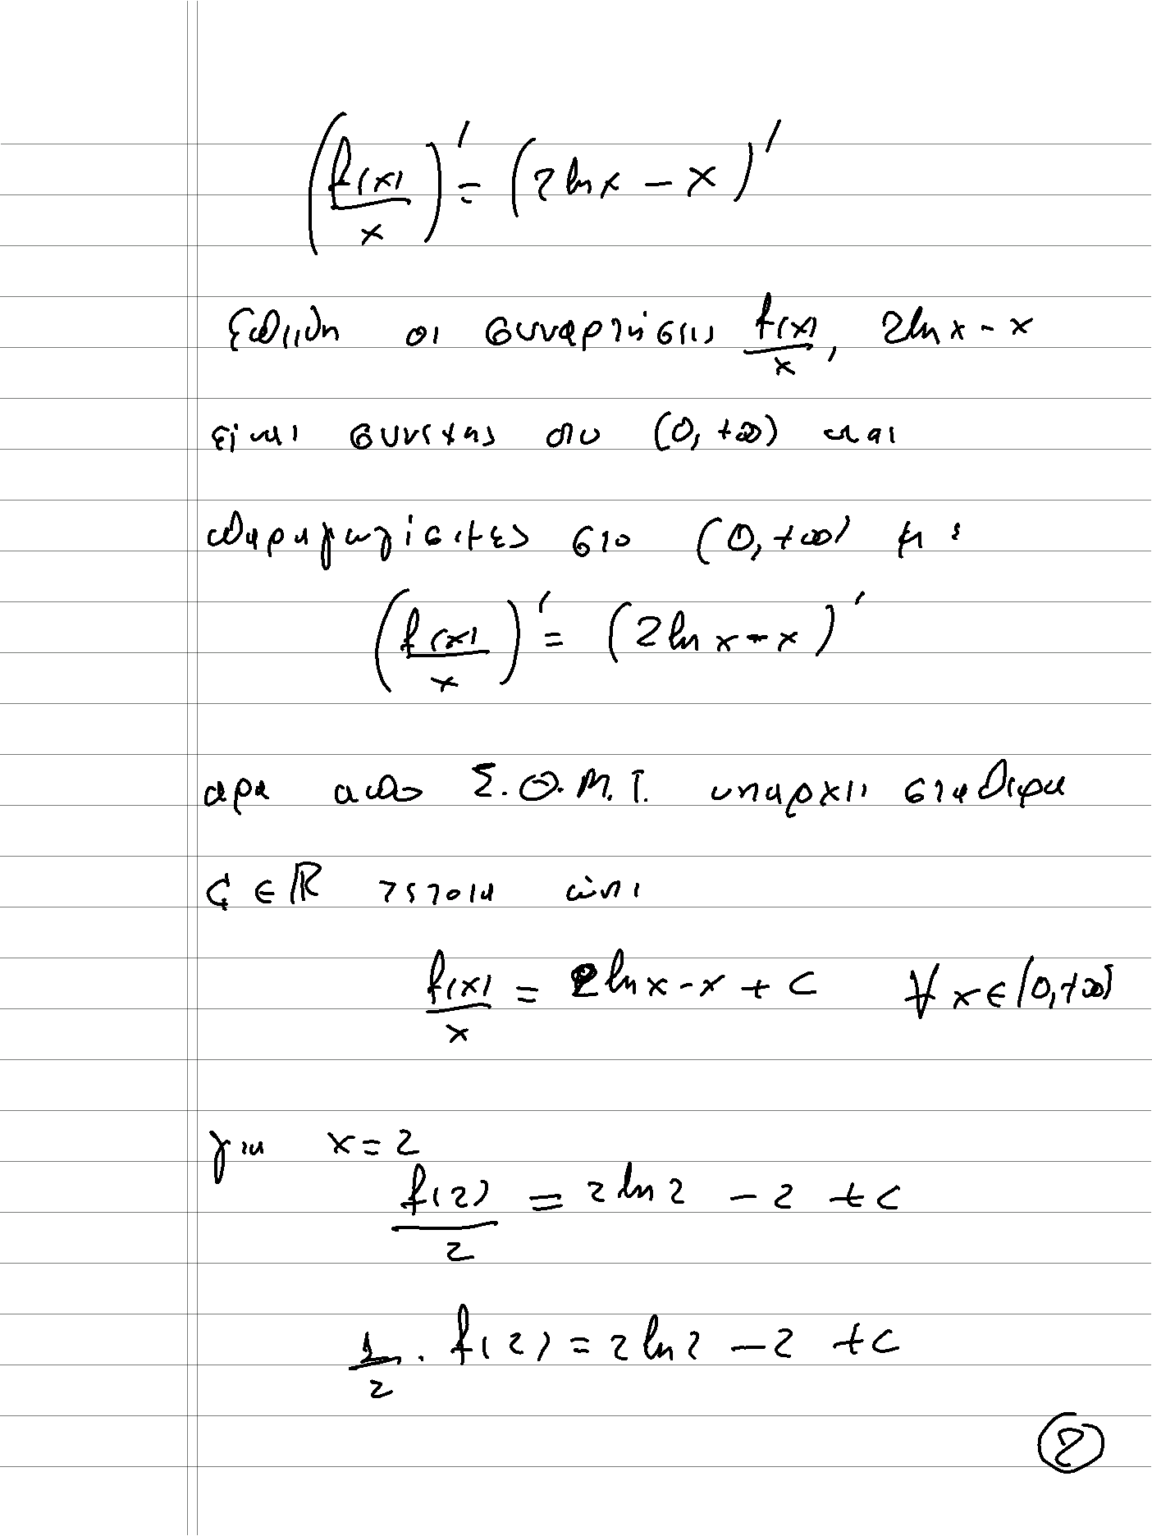 (f(x)/x)' = (2lnx - x)'
επειδη οι συναρτήσεις f(x)/x, 2lnx - x
είναι συνεχης στο (0, +∞) και
παραγωγίσιμες στο (0, +∞) με
(f(x)/x)' = (2lnx - x)'
αρα απο Σ.Θ.Μ.Τ. υπαρχει σταθερα
C ∈ ℝ τετοια ώστε
f(x)/x = 2lnx - x + c ∀ x ∈ (0, +∞)
για x = 2
f(2)/2 = 2ln2 - 2 + c
1/2 · f(2) = 2ln2 - 2 + c
2